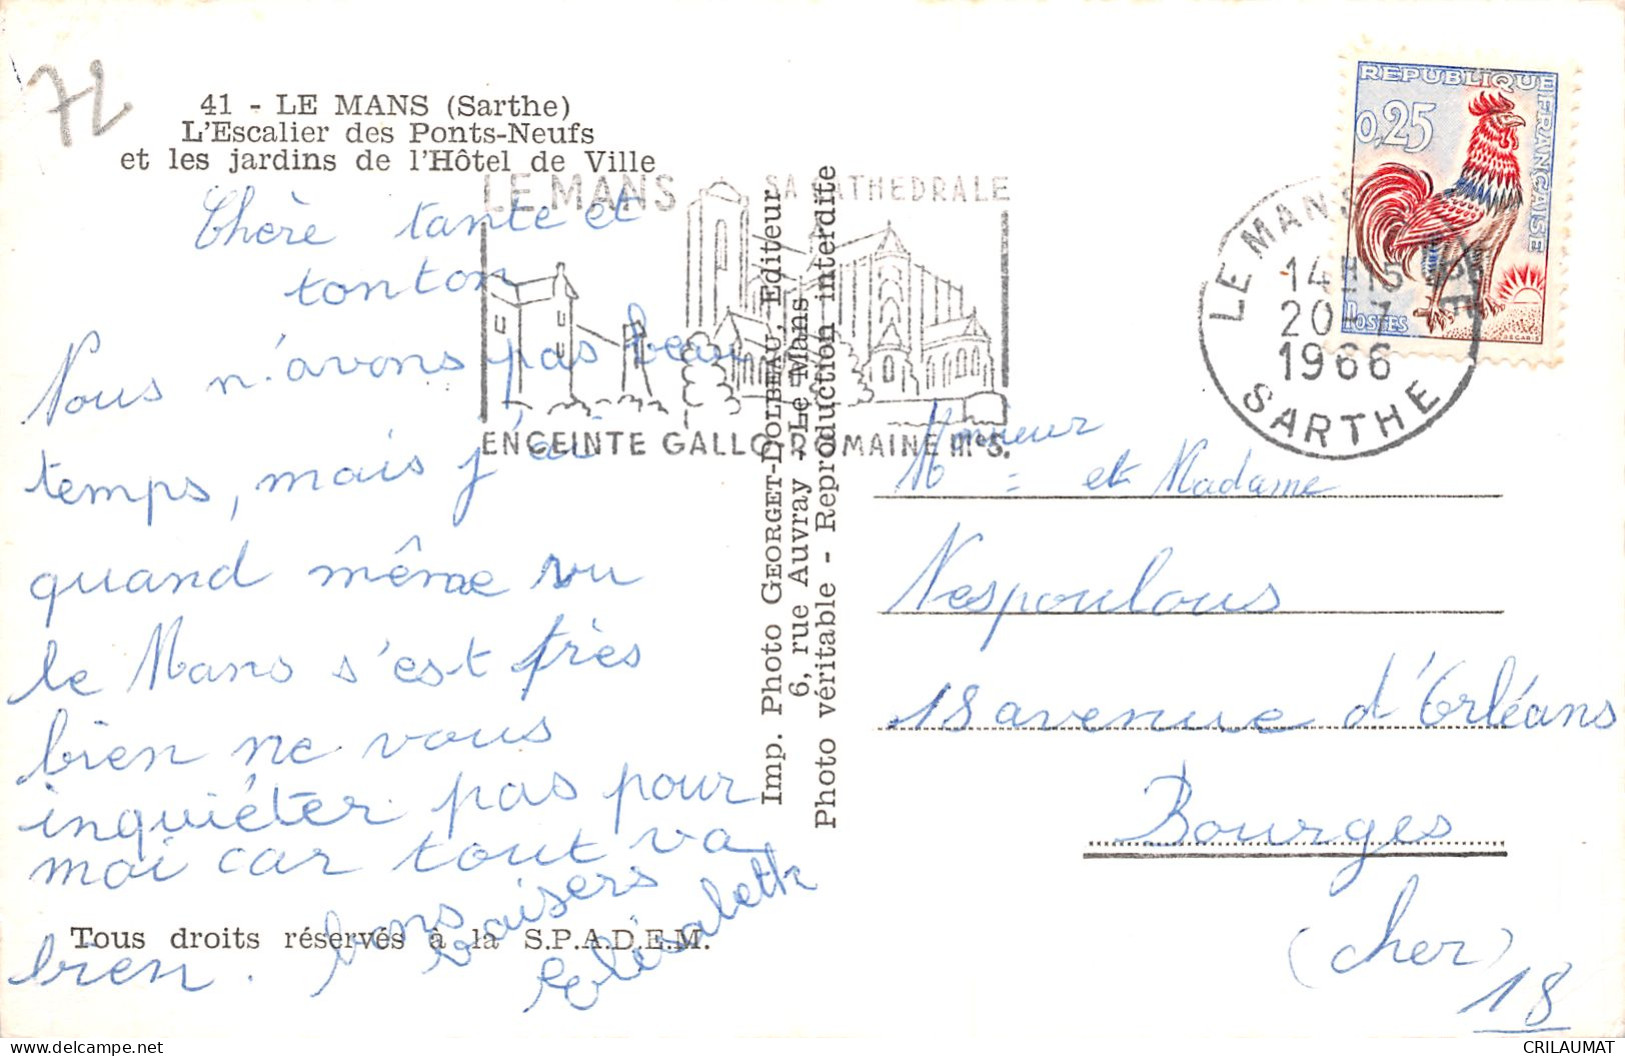 72
41 - LE MANS (Sarthe)
L'Escalier des Ponts-Neufs
et les jardins de l'Hôtel de Ville
Chère tante et
tonton
Nous n'avons pas beau
temps, mais j'ai
quand même vu
le Mans s'est très
bien ne vous
inquiéter pas pour
moi car tout va
bien. bons baisers
Elisabeth
Tous droits réservés à la S.P.A.D.E.M.
LE MANS SA CATHEDRALE
ENCEINTE GALLO-ROMAINE IIIe S.
Imp. Photo GEORGET-DOLBEAU, Editeur
6, rue Auvray - Le Mans
Photo véritable - Reproduction interdite
REPUBLIQUE FRANÇAISE
0,25
POSTES
DECARIS
LE MANS
14H15
20-7
1966
SARTHE
Monsieur
et Madame
Nespoulous
18 avenue d'Orléans
Bourges
(Cher)
18
delcampe.net
CRILAUMAT